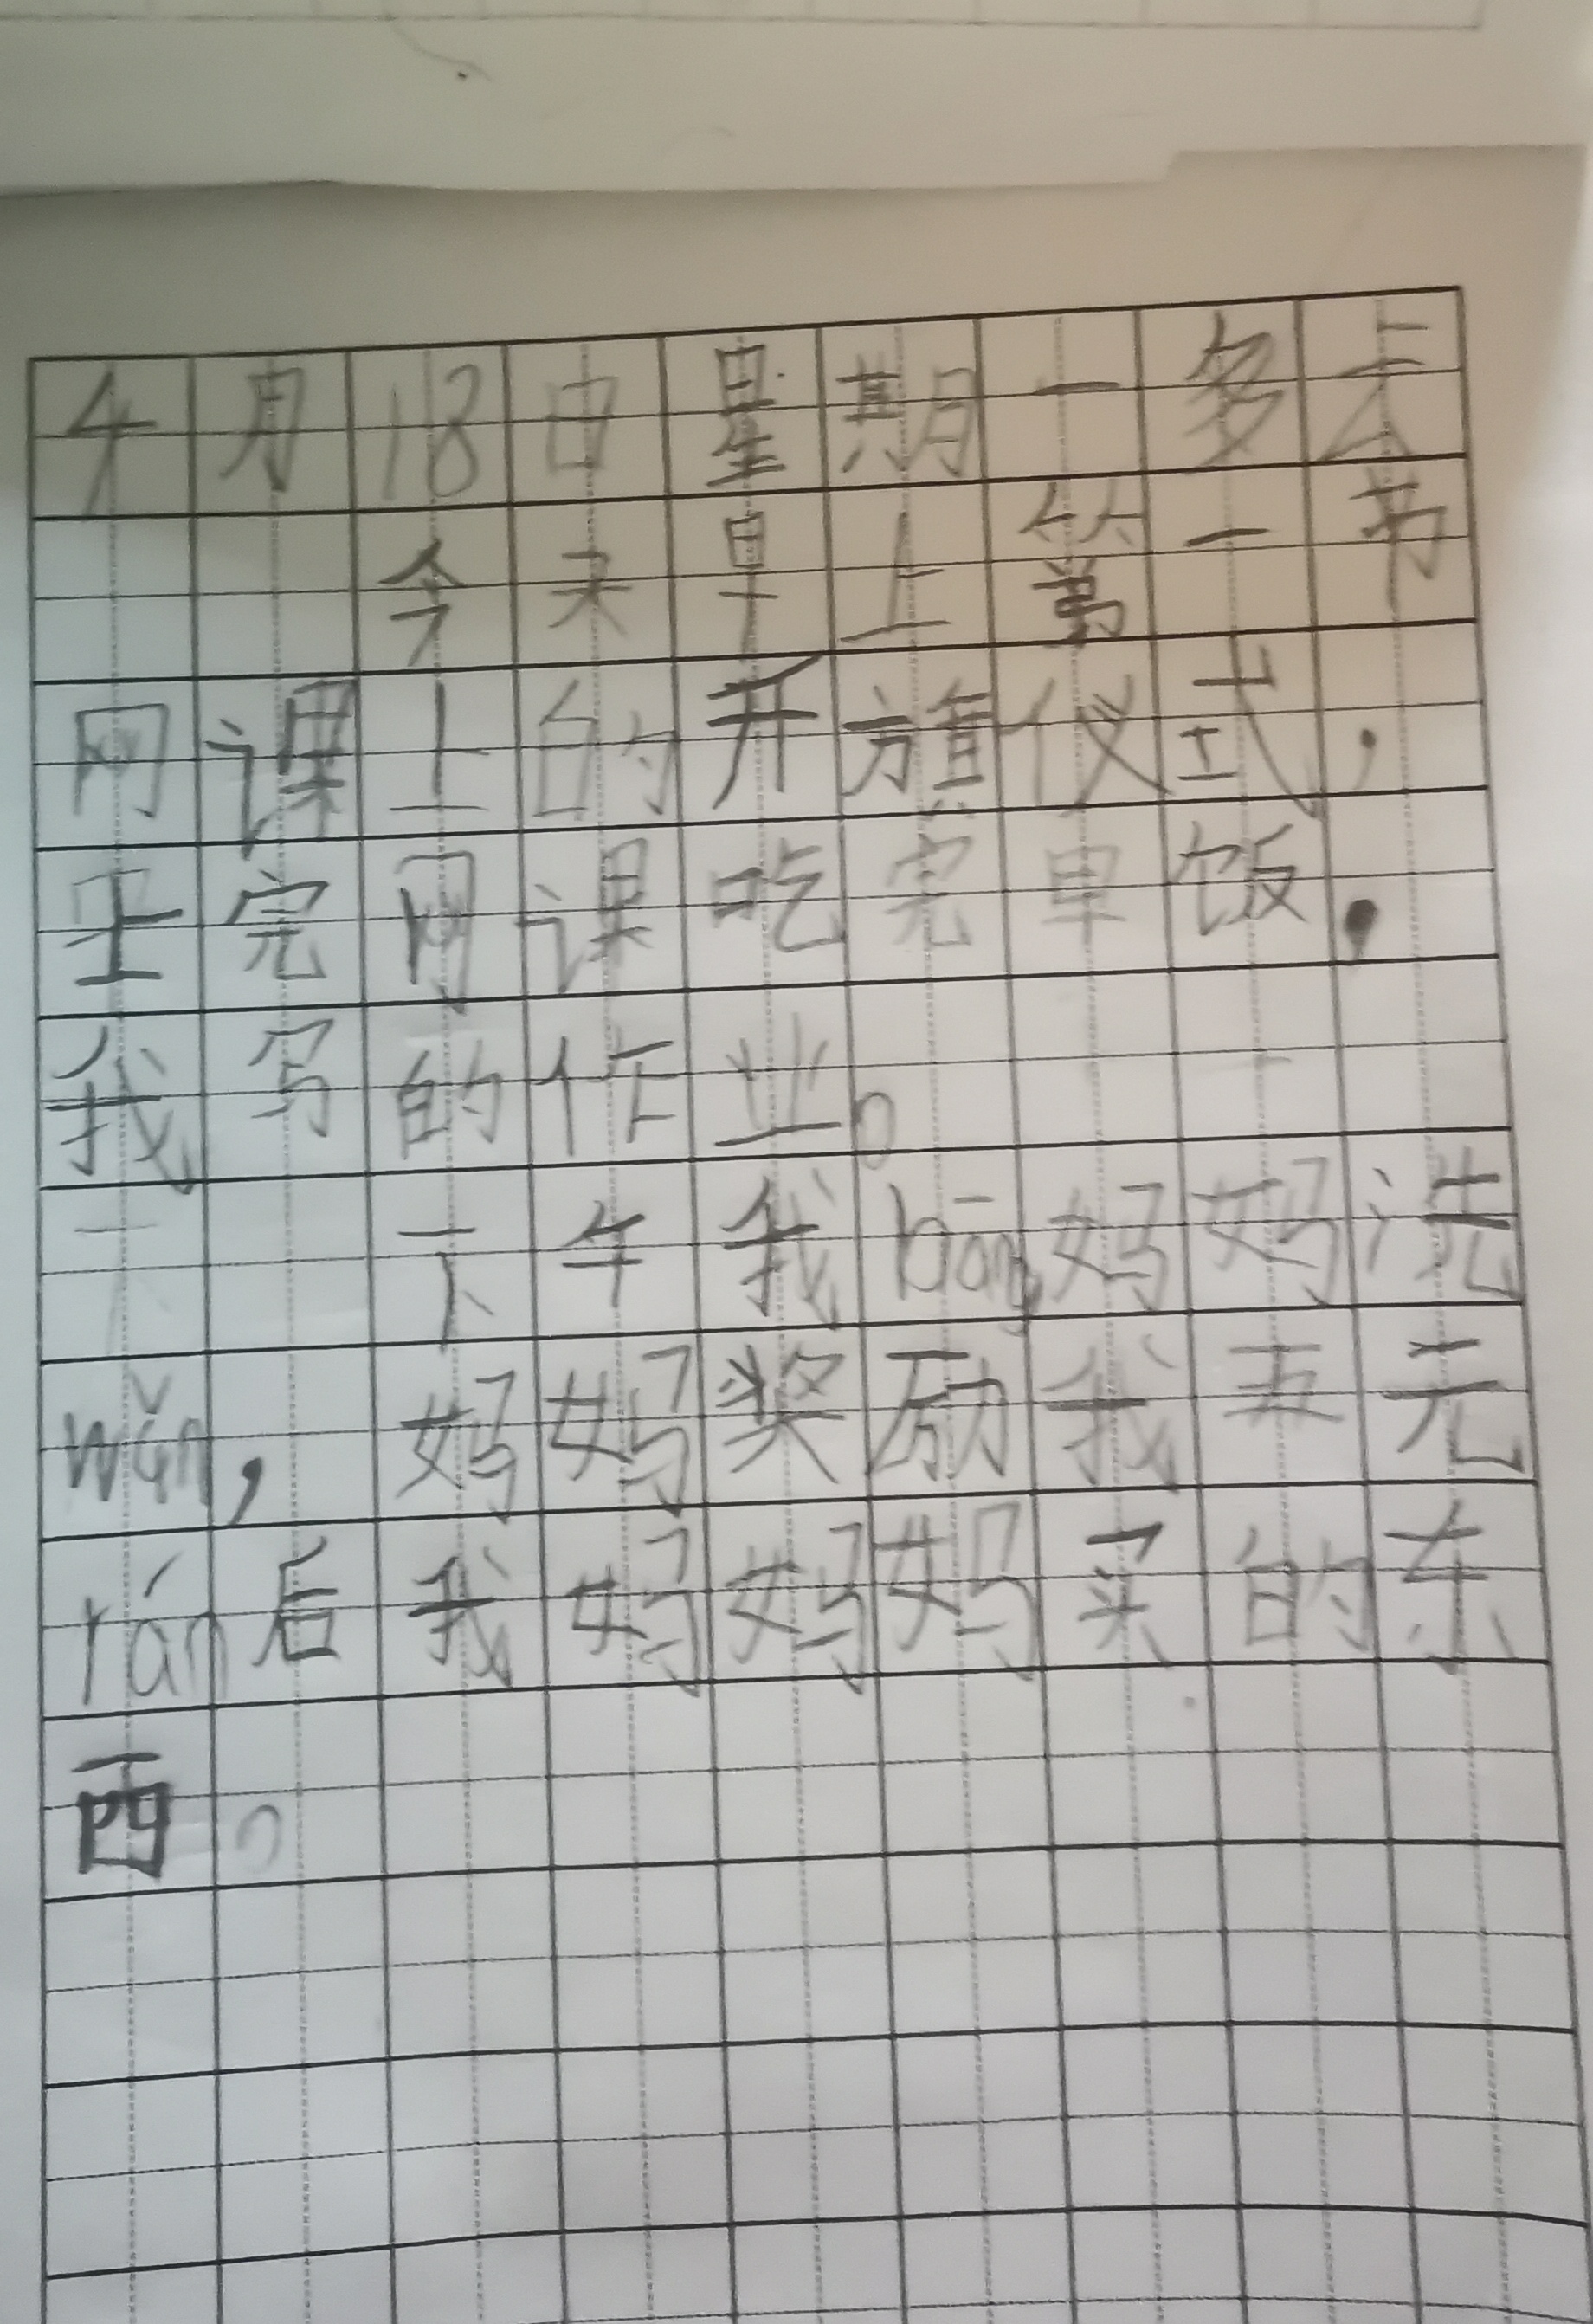 4月18日星期一多云
今天早上第一节
网课上的升旗仪式，
上完网课吃完早饭，
我写的作业。
下午我bāng妈妈洗
wǎn，妈妈奖励我五元
rán后我妈妈妈买的东
西。